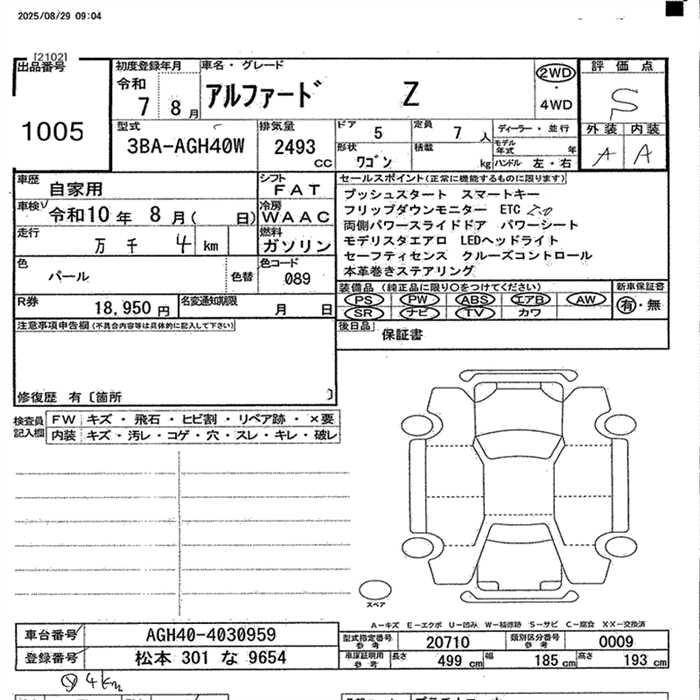 2025/08/29 09:04
[2102]
出品番号 初度登録年月 車名・グレード 評価点
令和 7 8月 アルファード Z 2WD ・ 4WD S
1005
外装 内装
A A
型式 排気量 ドア 5 定員 7人 ディーラー・並行
3BA-AGH40W 2493 cc モデル年式 年
形状 ワゴン 積載 kg ハンドル 左・右
車歴 自家用 シフト FAT
セールスポイント(正常に機能するものに限ります)
プッシュスタート スマートキー
車検 令和10年 8月( 日) 冷房 WAAC
フリップダウンモニター ETC 2.0
両側パワースライドドア パワーシート
走行 万 千 4 km 燃料 ガソリン
モデリスタエアロ LEDヘッドライト
セーフティセンス クルーズコントロール
本革巻きステアリング
色 パール 色替 色コード 089
装備品(純正品に限り○をつけてください) 新車保証書
PS PW ABS エアB AW 有・無
SR ナビ TV カワ
R券 18,950円 名変通知期限 月 日
注意事項申告欄(不具合内容等は具体的に記入して下さい)
後日品 保証書
修復歴 有〔箇所 〕
検査員記入欄 FW キズ・飛石・ヒビ割・リペア跡・×要
内装 キズ・汚レ・コゲ・穴・スレ・キレ・破レ
スペア
A-キズ E-エクボ U-凹み W-補修跡 S-サビ C-腐食 XX-交換済
車台番号 AGH40-4030959
型式指定番号参考 20710 類別区分番号参考 0009
登録番号 松本 301 な 9654
車庫証明用参考 長さ 499 cm 幅 185 cm 高さ 193 cm
4km